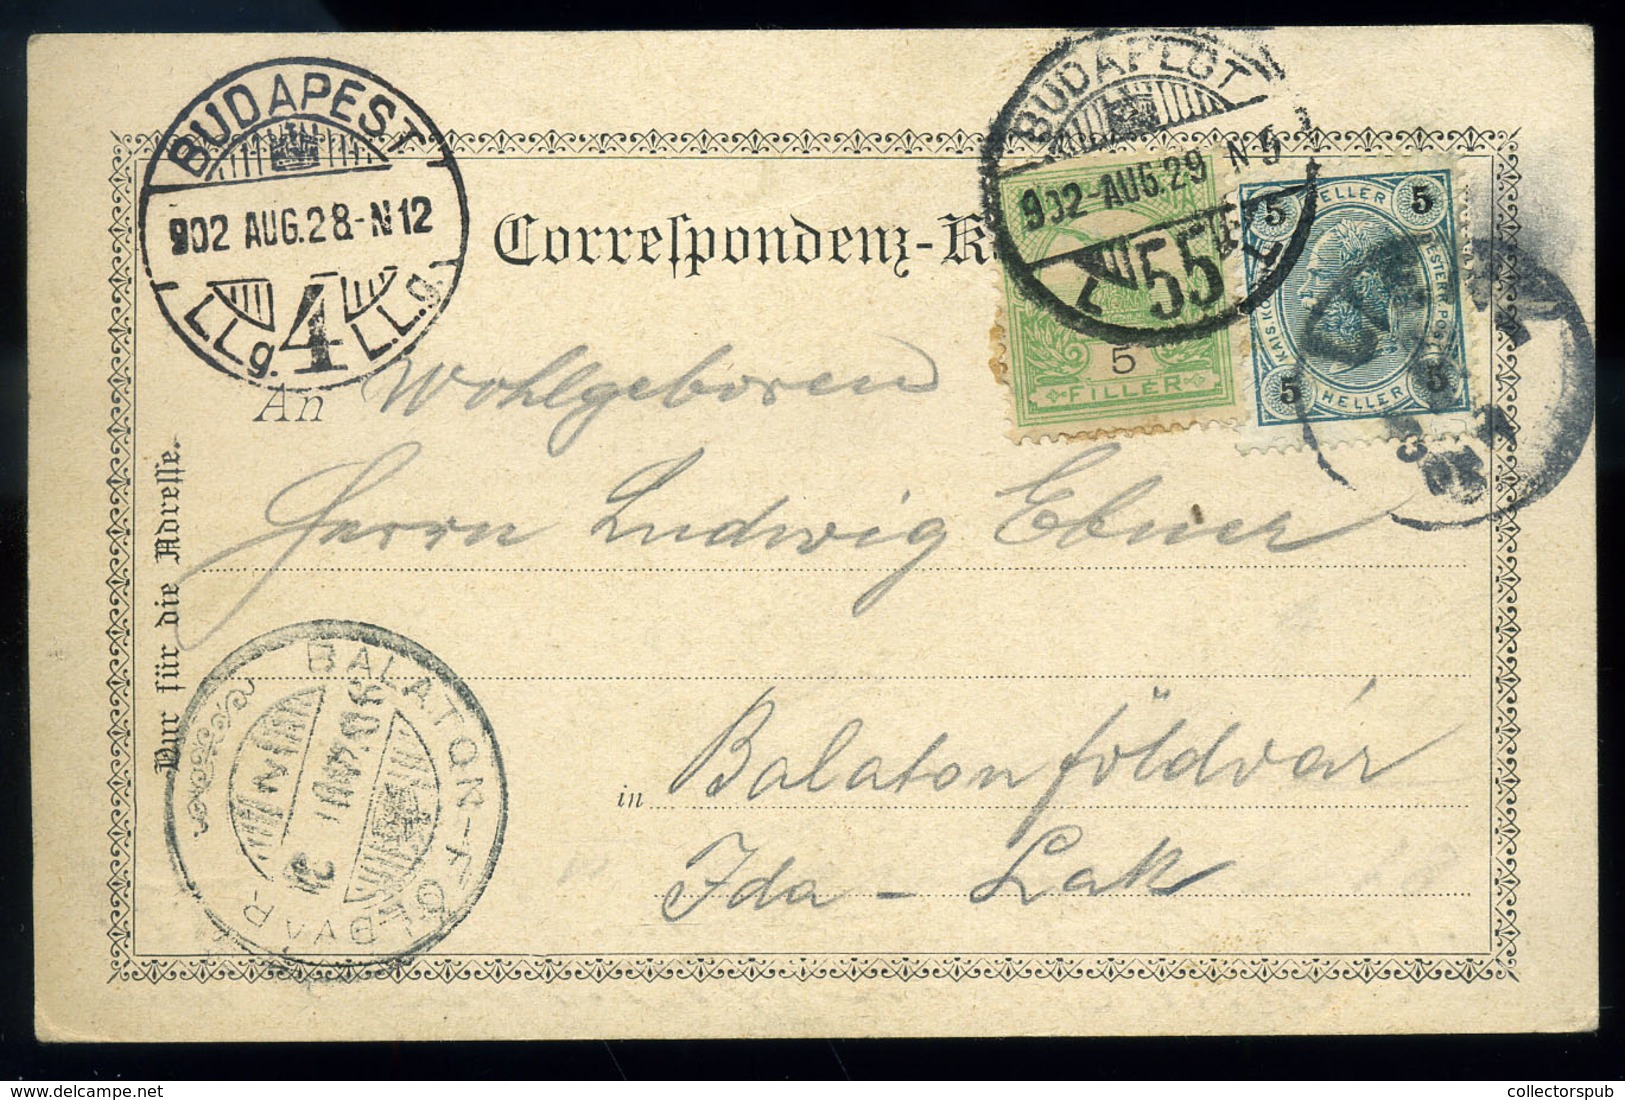 BUDAPEST
902 AUG.28.-N12
L.Lg. 4 L.L.g.
BUDAPEST
902-AUG.29 N 5
55
5
FILLÉR
5 HELLER 5
OESTERR. POST
5 HELLER 5
Correſpondenz-K
An
Wohlgeboren
Herrn Ludwig Ebner
Nur für die Adreſſe.
BALATON-FÖLDVÁR
in Balatonföldvár
Ida - Lak
collectorspub